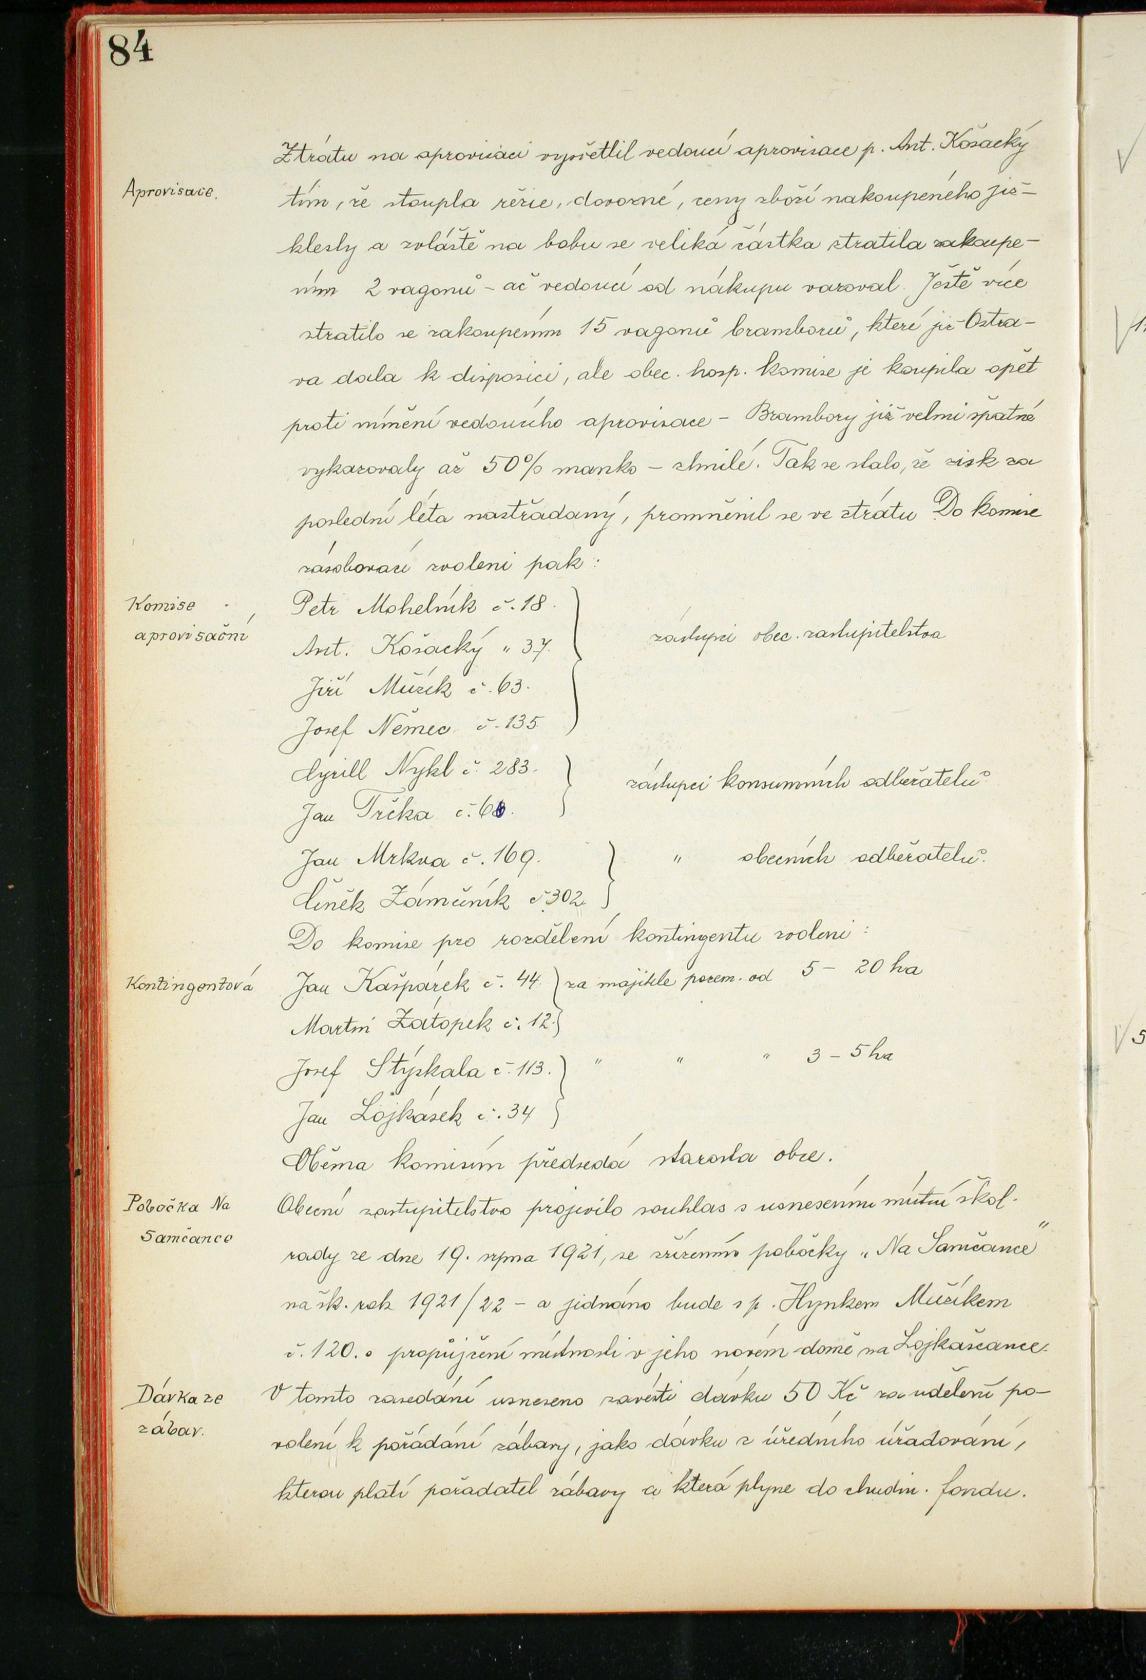 84
Ztrátu na aprovisaci vysvětlil vedoucí aprovisace p. Ant. Košacký
Aprovisace.
tím, že stoupla režie, dovozné, ceny zboží nakoupeného již
klesly a zvláště na bobu se veliká částka ztratila zakoupe-
ním 2 vagonů - ač vedoucí od nákupu varoval. Ještě více
ztratilo se zakoupením 15 vagonů bramborů, které již Ostra-
va dala k disposici, ale obec. hosp. komise je koupila opět
proti mínění vedoucího aprovisace - Brambory již velmi špatné
vykazovaly až 50% manko - shnilé. Tak se stalo, že zisk za
poslední léta nastřádaný, proměnil se ve ztrátu Do komise
zásobovací zvoleni pak:
Komise
aprovisační
Petr Mohelník č. 18.
Ant. Košacký " 37.
zástupci obec. zastupitelstva
Jiří Mužík č. 63.
Josef Němec č. 135
Cyrill Nykl č. 283.
zástupci konsumních odběratelů
Jan Trčka č.
Jan Mrkva č. 169.
" obecních odběratelů.
Čeněk Zámečník č 302.
Do komise pro rozdělení kontingentu zvoleni:
Kontingentová
Jan Kašpárek č. 44 za majitele pozem. od 5 - 20 ha
Martin Zátopek č. 12.
Josef Stýskala č. 113. " " " 3 - 5 ha
Jan Lojkásek č. 34
Oběma komisím předsedá starosta obce.
Pobočka Na
Samčance
Obecní zastupitelstvo projevilo souhlas s usnesením místní škol.
rady ze dne 19. srpna 1921, se zřízením pobočky „Na Samčance"
na šk. rok 1921/22 - a jednáno bude s p. Hynkem Mužíkem
č. 120. o propůjčení místnosti v jeho novém domě na Lojkaščance.
Dávka ze
zábav.
V tomto zasedání usneseno zavésti dávku 50 Kč za udělení po-
volení k pořádání zábavy, jako dávku z úředního úřadování,
kterou platí pořadatel zábavy a která plyne do chudin. fondu.